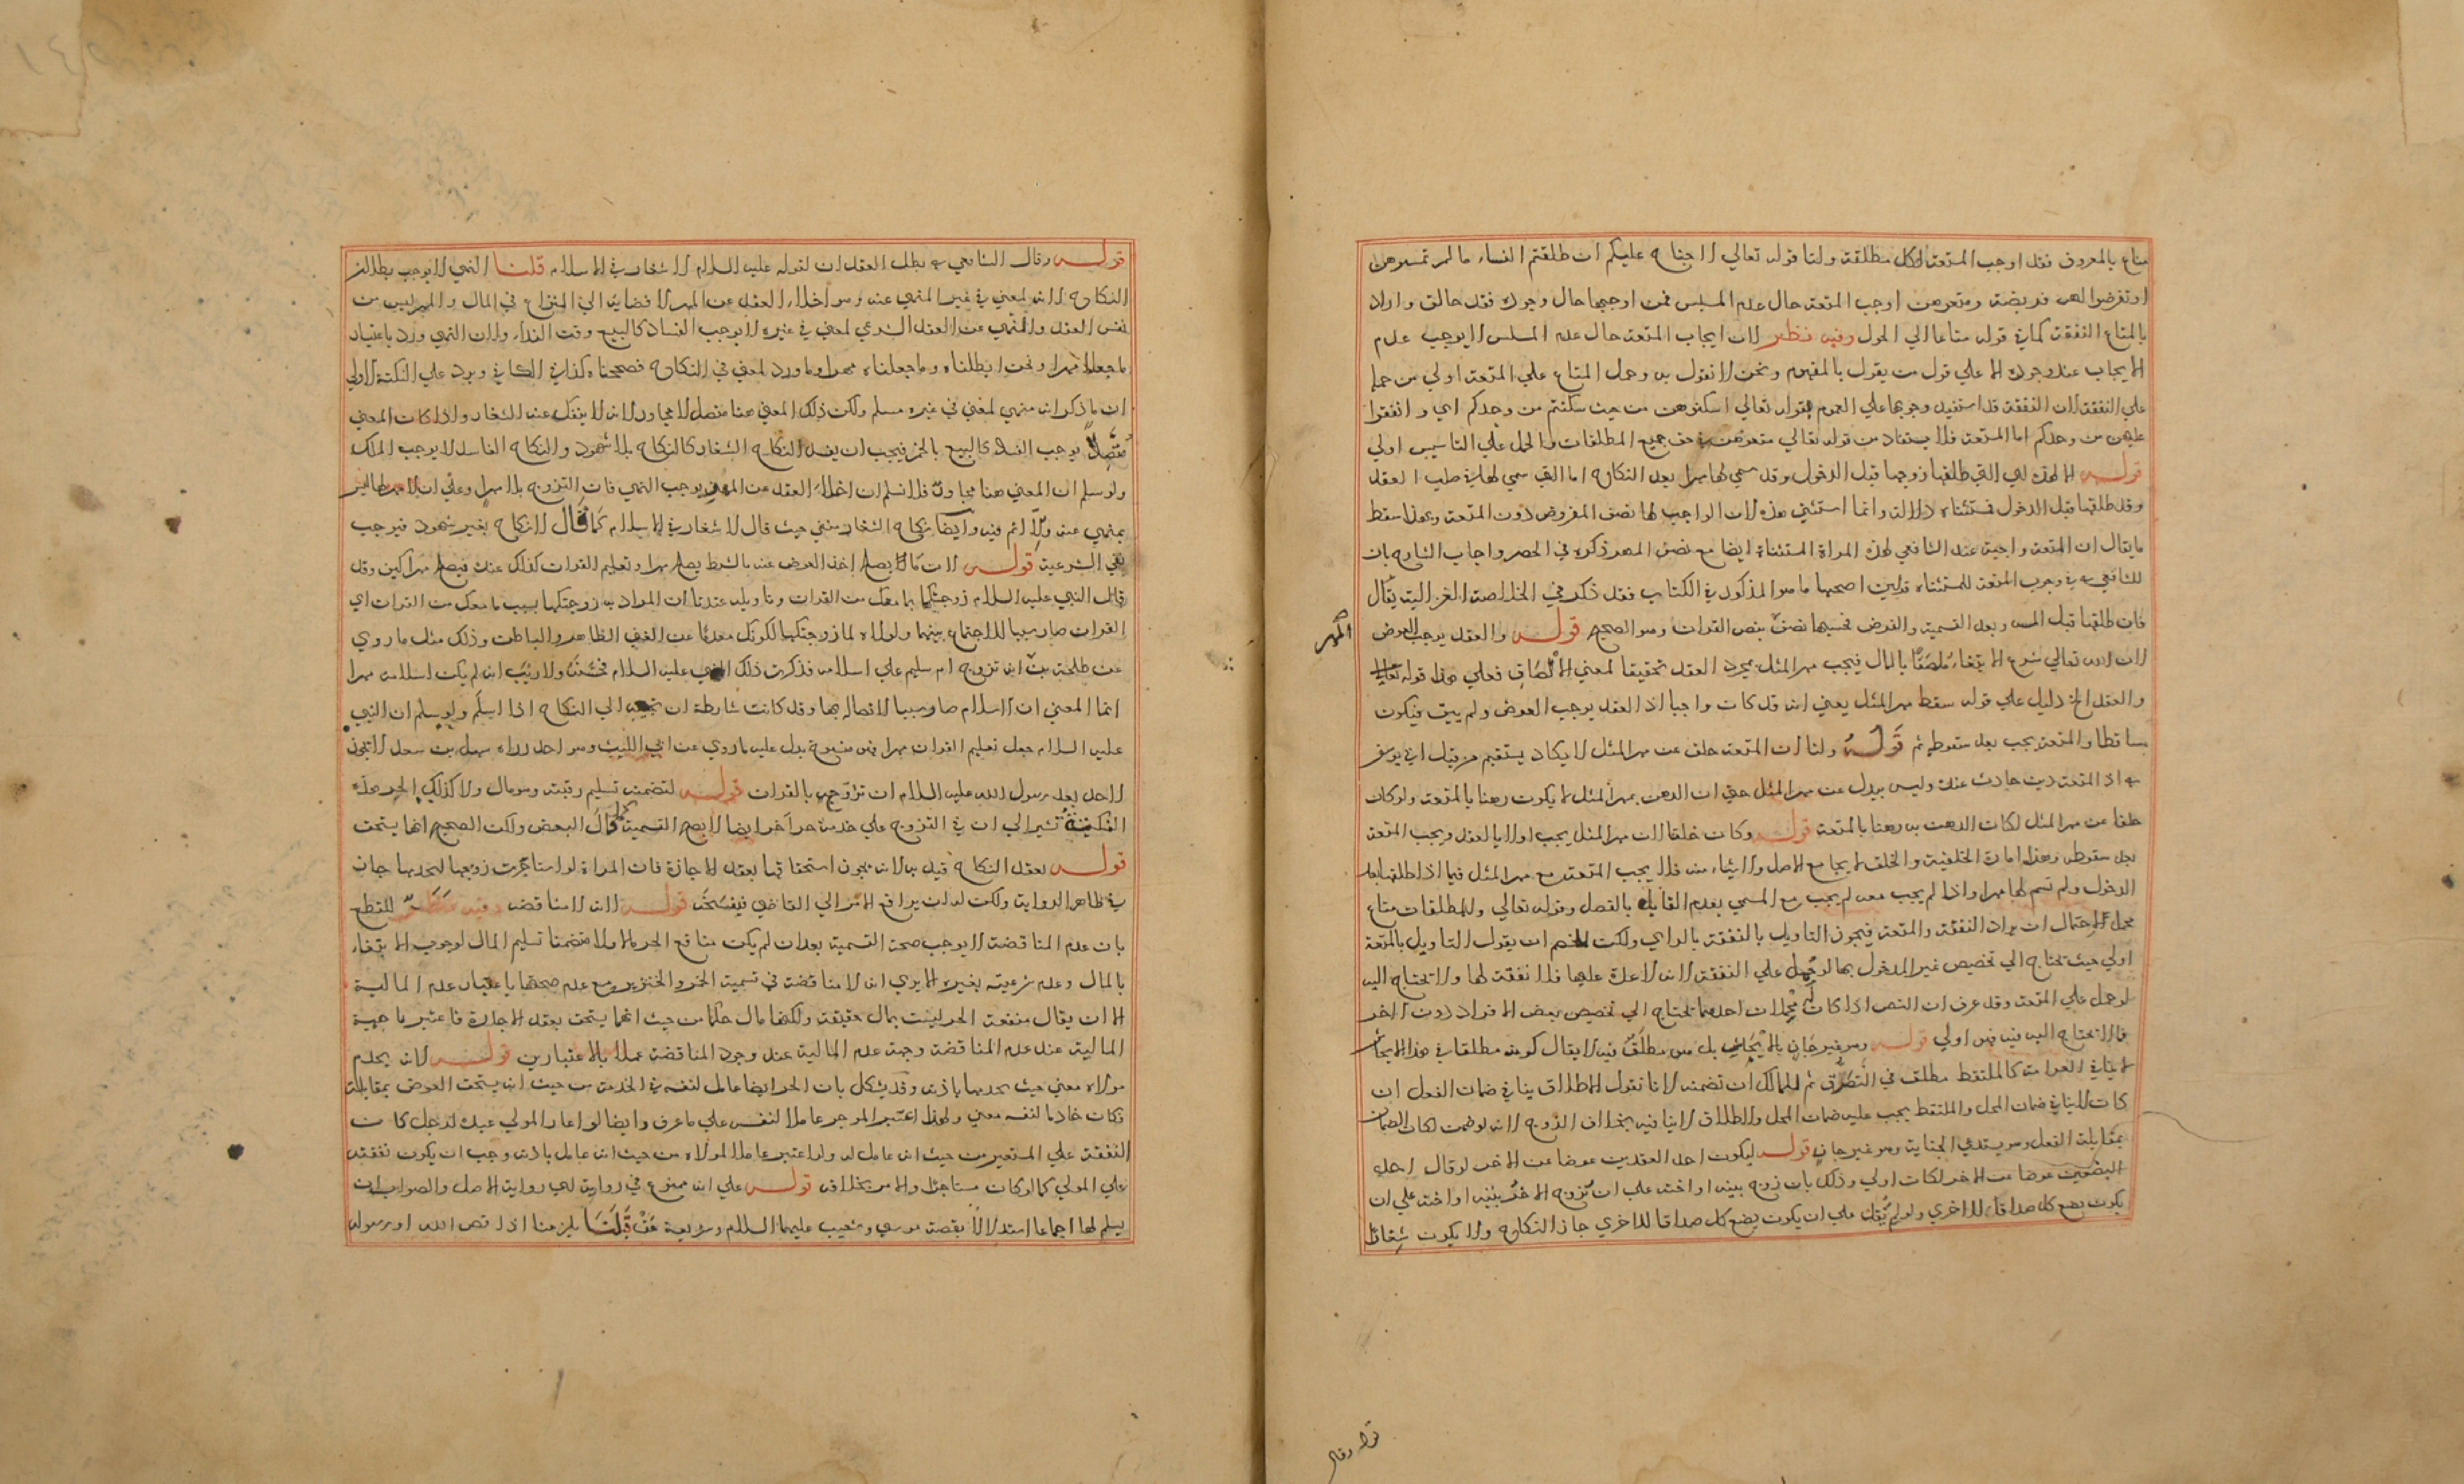 متاع بالمعروف فقد اوجب المتعة لكل مطلقة ولنا قوله تعالي لا جناح عليكم ان طلقتم النساء ما لم تمسوهن
او تفرضوا لهن فريضة ومتعوهن اوجب المتعة حال عدم المسيس فمن اوجبها حال وجوده فقد خالف واراد
بالمتاع النفقة كما في قوله متاعا الي الحول وفيه نظر لان ايجاب المتعة حال عدم المسيس لا يوجب عدم
الايجاب عند وجوده الا علي قول من يقول بالمفهوم ونحن لا نقول به وحمل المتاع علي المتعة اولي من حمله
علي النفقة لان النفقة قد استفيد وجوبها علي العموم بقوله تعالي اسكنوهن من حيث سكنتم من وجدكم اي وانفقوا
عليهن من وجدكم اما المتعة فلا يستفاد من قوله تعالي متعوهن في حق جميع المطلقات والحمل علي التاسيس اولي
قوله الا لهذه هي التي طلقها زوجها قبل الدخول وقد سمي لها مهرا بعد النكاح اما التي سمي لها في صلب العقد
وقد طلقها قبل الدخول فمستثناه دلالة وانما استثني هذه لان الواجب لها نصف المفروض دون المتعة وبهذا سقط
ما يقال ان المتعة واجبة عند الشافعي لهذه المراة المستثناة ايضا مع نصف المهر ذكره في الحصر واجاب الشارح بان
للشافعي في وجوب المتعة للمستثناه قولين اصحهما ما هو المذكور في الكتاب فقد ذكر في الخلاصة الغزالية يقال
فان طلقها قبل المس وبعد التسمية والفرض فحسبها نصف بنص القران وهو الصحيح قوله والعقد يوجب العوض
المهر
لان الله تعالي شرع الابتغاء ملصقا بالمال فيجب مهر المثل بمجرد العقد تحقيقا لمعني الالصاق فعلي هذا قوله
والعقد الخ دليل علي قوله سقط مهر المثل يعني انه قد كان واجبا اذ العقد يوجب العوض ولم يبق فيكون
ساقطا والمتعة يجب بعد سقوطه ثم قوله ولنا ان المتعة خلف عن مهر المثل لا يكاد يستقيم من قبل ابي يوسف
اذ المتعة دين حادث عنده وليس ببدل عن مهر المثل حتي ان الرهن بمهر المثل لا يكون رهنا بالمتعة ولو كان
خلفا عن مهر المثل لكان الرهن به رهنا بالمتعة قوله وكان خلفا لان مهر المثل يجب اولا بالعقد ويجب المتعة
بعد سقوطه وهذا امارة الخلفية والخلف لا يجامع الاصل ولا شيئا منه فلا يجب المتعة مع مهر المثل فيما اذا طلقها بعد
الدخول ولم تسم لها مهرا واذا لم يجب معه لم يجب مع المسمي بعدم القايل بالفصل وقوله تعالي وللمطلقات متاع
محمل لاحتمال ان يراد النفقة والمتعة فيجوز التاويل بالنفقة بالراي ولكن للخصم ان يقول التاويل بالمتعة
اولي حيث تحتاج الي تخصيص غير المدخول بها لو حمل علي النفقة لانه لا عدة عليها فلا نفقة لها ولا تحتاج اليه
لو حمل علي المتعة وقد عرف ان النص اذا كان له محملان احدهما تحتاج الي تخصيص بعض الافراد دون الاخر
فما لا تحتاج اليه فيه فهو اولي قوله وهو غير جان بالايحاش بل هو مطلق فيه لا يقال كونه مطلقا في هذا الايحاش
لا ينافي الغرامة كالملتقط مطلق في التصرف ثم للمالك ان تضمنه لانا نقول الاطلاق ينافي ضمان الفعل ان
كان لا ينافي ضمان المحل والملتقط يجب عليه ضمان المحل والاطلاق لا ينافيه بخلاف الزوج لانه لو ضمن لكان الضمان
بمقابلة الفعل وهو يستدعي الجناية وهو غير جان قوله ليكون احد العقدين عوضا عن الاخر لو قال احد
البضعين عوضا عن الاخر لكان اولي وذلك بان زوج بنته او اخته علي ان تزوج الاخر بنته او اخته علي ان
يكون بضع كل صداقا للاخري ولو لم يقل علي ان يكون بضع كل صداقا للاخري جاز النكاح ولا يكون شغارا
قوله وقال
قوله وقال الشافعي بطل العقدان لقوله عليه السلام لا شغار في الاسلام قلنا النهي لا يوجب بطلان
النكاح لانه لمعني في غير المنهي عنه وهو اخلاء العقد عن المهر لافضائه الي النزاع في المال والمهر ليس من
نفس العقد والنهي عن العقد الشرعي لمعني في غيره لا يوجب الفساد كالبيع وقت النداء ولان النهي ورد باعتبار
ما جعلا مهرا ونحن ابطلناه وما جعلناه مهرا وما ورد لمعني في النكاح فصححناه كذا في الكافي ويرد علي النكتة الاولي
ان ما ذكر انه منهي لمعني في غيره مسلم ولكن ذلك المعني هنا متصل لا مجاور لانه لا ينفك عنه الشغار واذا كان المعني
متصلا يوجب الفساد كالبيع بالخمر فيجب ان يفسد النكاح الشغار كالنكاح بلا شهود والنكاح الفاسد لا يوجب الملك
ولو سلم ان المعني هنا مجاور فلا نسلم ان اخلاء العقد عن المهر يوجب النهي فان التزوج بلا مهر وعلي ان لا مهر لها ليس
بمنهي عنه ولا اثم فيه وايضا نكاح الشغار منفي حيث قال لا شغار في الاسلام كما قال لا نكاح بغير شهود فيوجب
نفي الشرعية قوله لان ما لا يصلح اخذ العوض عنه بالشرط يصلح مهرا وتعليم القران كذلك عنده فيصلح مهرا كيف وقد
قال النبي عليه السلام زوجتكها بما معك من القران وتاويله عندنا ان المراد به زوجتكها بسبب ما معك من القران اي
القران صار سببا للاجتماع بينهما ولولاه لما زوجتكها لكونك معدما عن الغني الظاهر والباطن وذلك مثل ما روي
عن طلحة انه تزوج ام سليم علي اسلامه فذكرت ذلك النبي عليه السلام فحسنه ولا ريب انه لم يكن اسلامه مهرا
انما المعني ان الاسلام صار سببا لاتصاله بها وقد كانت شارطة ان تجيب الي النكاح اذا اسلم ولو سلم ان النبي
عليه السلام جعل تعليم القران مهرا فهو منسوخ بدل عليه ما روي عن ابي الليث وهو احد رواه سهل بن سعد لا يجوز
لاحد بعد رسول الله عليه السلام ان تزوج بالقران قوله لتضمنه تسليم رقبته وهو مال ولا كذلك الحر هذه
النكتة تشير الي ان في التزوج علي خدمة حر اخر ايضا لا يصح التسمية كما قال البعض ولكن الصحيح انها يستحق
قوله بعقد النكاح قيل به لانه يجوز استحقاقها بعقد الاجازة فان المراة لو استاجرت زوجها لخدمها جاز
في ظاهر الرواية ولكن له ان يرافع الامر الي القاضي فيفسخه قوله لانه لا مناقضة وفيه نظر للقطع
بان عدم المناقضة لا يوجب صحة التسمية بعد ان لم يكن منافع الحر مالا ولا متضمنا تسليم المال لوجوب الابتغاء
بالمال وعدم شرعيته بغيره الا يري انه لا مناقضة في تسمية الخمر والخنزير مع عدم صحتها باعتبار عدم المالية
الا ان يقال منفعة الحر ليست بمال حقيقة ولكنها مال حكما من حيث انها يستحق بعقد الاجارة فاعتبر ما جهة
المالية عند عدم المناقضة وجهة عدم المالية عند وجود المناقضة عملا بالاعتبارين قوله لانه يخدم
مولاه معني حيث يخدمها باذنه وقد يشكل بان الحر ايضا عامل لنفسه في الخدمة من حيث انه يستحق العوض بمقابلته
فكان خادما لنفسه معني ولهذا اعتبر الموجر عاملا لنفسه علي ما عرف وايضا لو اعار المولي عبده لرجل كان
النفقة علي المستعير من حيث انه عامل له ولو اعتبر عاملا لمولاه من حيث انه عامل باذنه وجب ان يكون نفقته
علي المولي كما لو كان مستاجرا والامر بخلافه قوله علي انه ممنوع في رواية هي رواية الاصل والصواب ان
يسلم لها اجماعا استدلالا بقصة موسي وشعيب عليهما السلام وشريعة من قبلنا يلزمنا اذا قص الله او رسوله